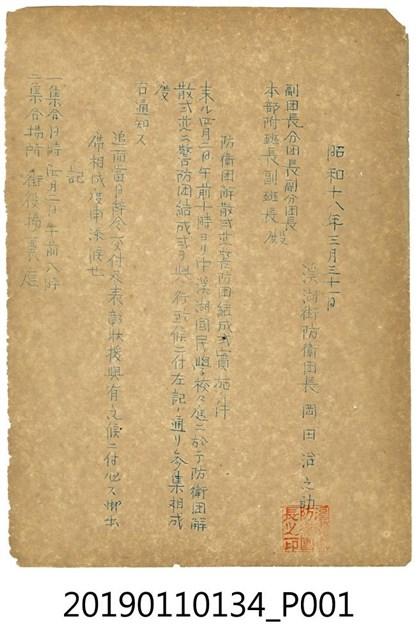 昭和十八年三月三十一日
溪湖街防衛団長 岡田治之助
副団長分団長副分団長
本部附班長副班長 殿
防衛団解散式並ニ警防団結成式ニ實施ノ件
来ル四月一日午前十時ヨリ中溪湖国民學校々庭ニ於テ防衛団解
散式並ニ警防団結成式ヲ擧行致候ニ付左記ノ通リ参集相成
度
右通知ス
追而當日辞令交付及表彰状授與有之候ニ付必ス御出
席相成度申添候也
記
一集合日時 四月一日午前八時
二集合場所 街役場裏庭
20190110134_P001